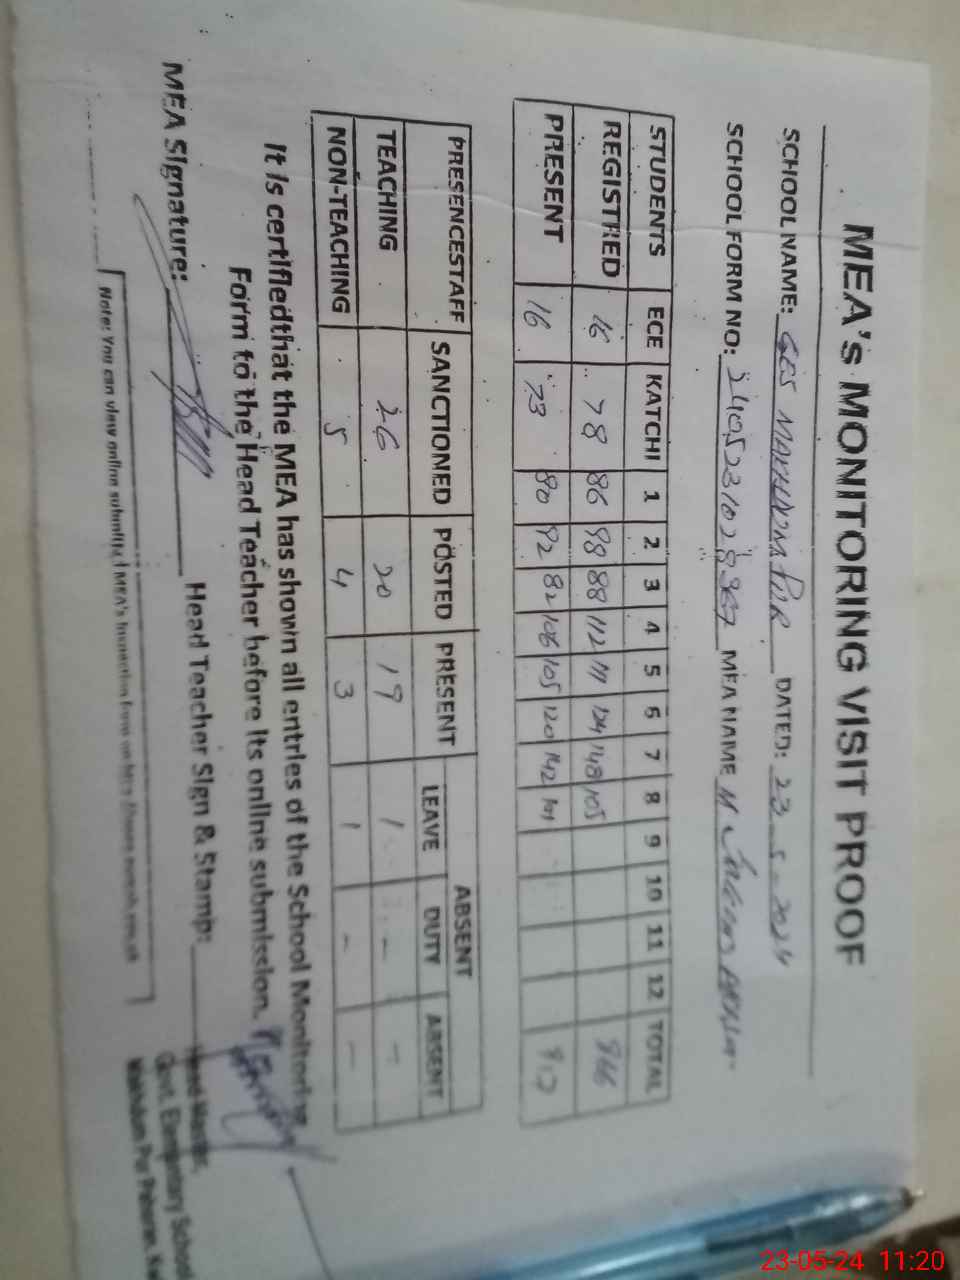 MEA's MONITORING VISIT PROOF
SCHOOL NAME: GES MAKHDUM PUR DATED: 23-5-2024
SCHOOL FORM NO: MEA NAME M
STUDENTS ECE KATCHI 1 2 3 4 5 6 7 8 9 10 11 12 TOTAL
REGISTRED 16 78 86 98 88 112 111 124 148 105 966
PRESENT 16 73 80 92 82 106 105 120 142 101
PRESENCESTAFF SANCTIONED POSTED PRESENT ABSENT
LEAVE DUTY ABSENT
TEACHING 26 20 19 1 - -
NON-TEACHING 5 4 3 1 - -
It is certifiedthat the MEA has shown all entries of the School Monitoring
Form to the Head Teacher before its online submission.
MEA Signature: Head Teacher Sign & Stamp:
Head Master,
Govt. Elementary School
Makhdum Pur Pahoran,
Note: You can view online submitted MEA's Inspection form on
23-05-24 11:20